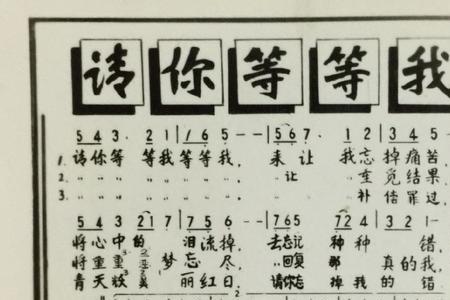 请你等等我
5 4 3 · 2 1 | 1 6 5 - - | 5 6 7 · 1 2 | 3 4 5
1. 请你等 等我等等我， 来让 我忘掉痛苦，
2. 〃 〃 〃 〃 〃 〃 〃 〃 让 至觉结果，
3. 〃 〃 〃 〃 〃 〃 〃 〃 补偿罪过，
5 4 3 2 1 7 | 7 5 6 - - | 7 6 5 7 2 4 | 3 2 1 -
将心中的 泪流掉， 去忘记 种种 错，
将重重 梦忘尽， 回复 那真的我，
青天 丽红日， 请你忘掉我的错